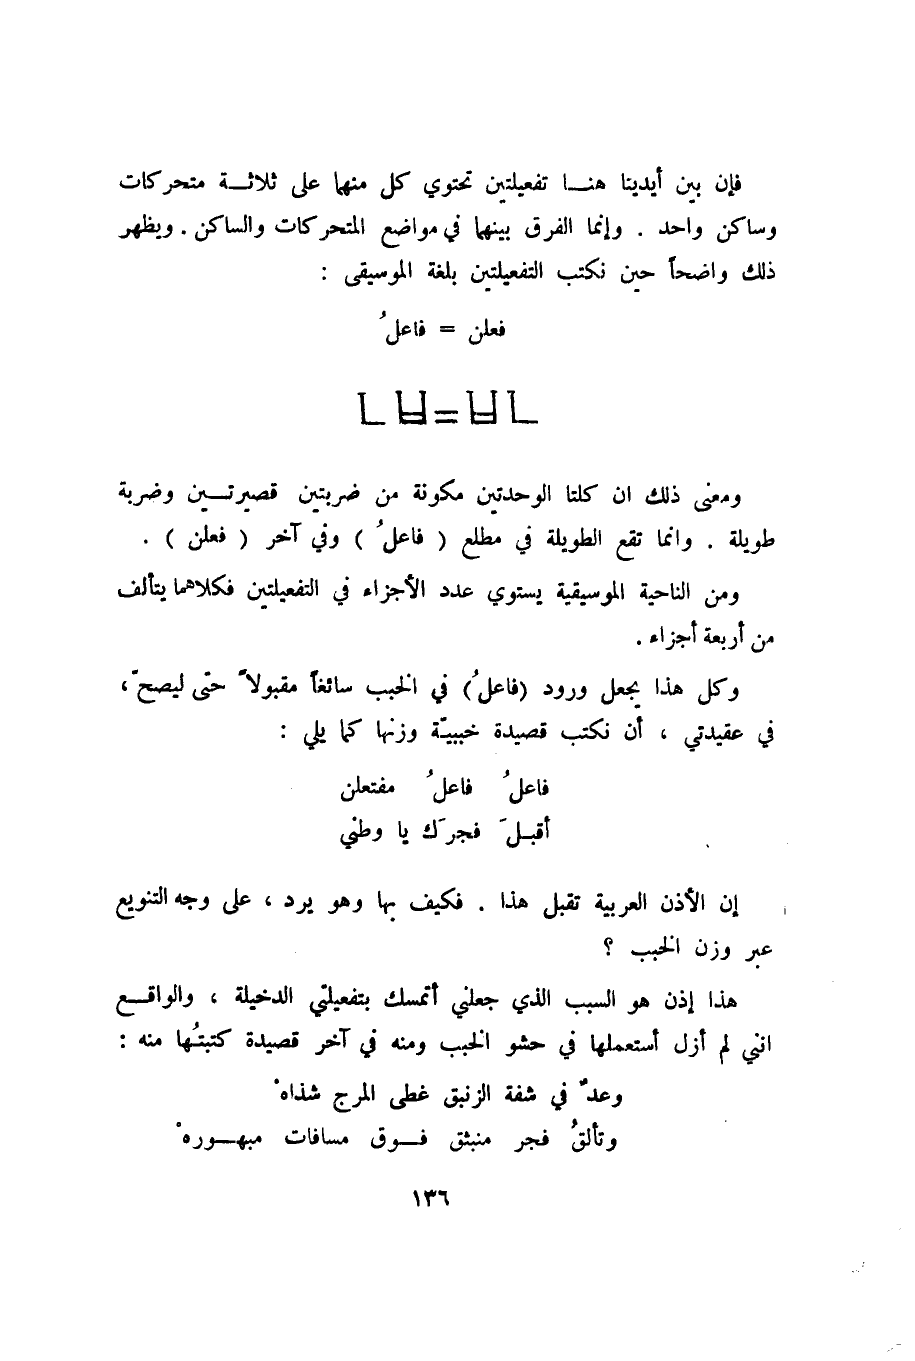 فإن بين أيدينا هنـا تفعيلتين تحتوي كل منها على ثلاثـة متحركات
وساكن واحد . وإنما الفرق بينهما في مواضع المتحركات والساكن . ويظهر
ذلك واضحاً حين نكتب التفعيلتين بلغة الموسيقى :
فعلن = فاعلُ
ومعنى ذلك ان كلتا الوحدتين مكونة من ضربتين قصيرتـين وضربة
طويلة . وانما تقع الطويلة في مطلع ( فاعلُ ) وفي آخر ( فعلن ) .
ومن الناحية الموسيقية يستوي عدد الأجزاء في التفعيلتين فكلاهما يتألف
من أربعة أجزاء .
وكل هذا يجعل ورود (فاعلُ) في الخبب سائغاً مقبولاً حتى ليصحّ ،
في عقيدتي ، أن نكتب قصيدة خببيّة وزنها كما يلي :
فاعلُ فاعلُ مفتعلن
أقبـلَ فجرَك يا وطني
إن الأذن العربية تقبل هذا . فكيف بها وهو يرد ، على وجه التنويع
عبر وزن الخبب ؟
هذا إذن هو السبب الذي جعلني أتمسك بتفعيلتي الدخيلة ، والواقـع
انني لم أزل أستعملها في حشو الخبب ومنه في آخر قصيدة كتبتُها منه :
وعدٌ في شفة الزنبق غطى المرج شذاهْ
وتألقُ فجر منبثق فـوق مسافات مبهـورهْ
١٣٦